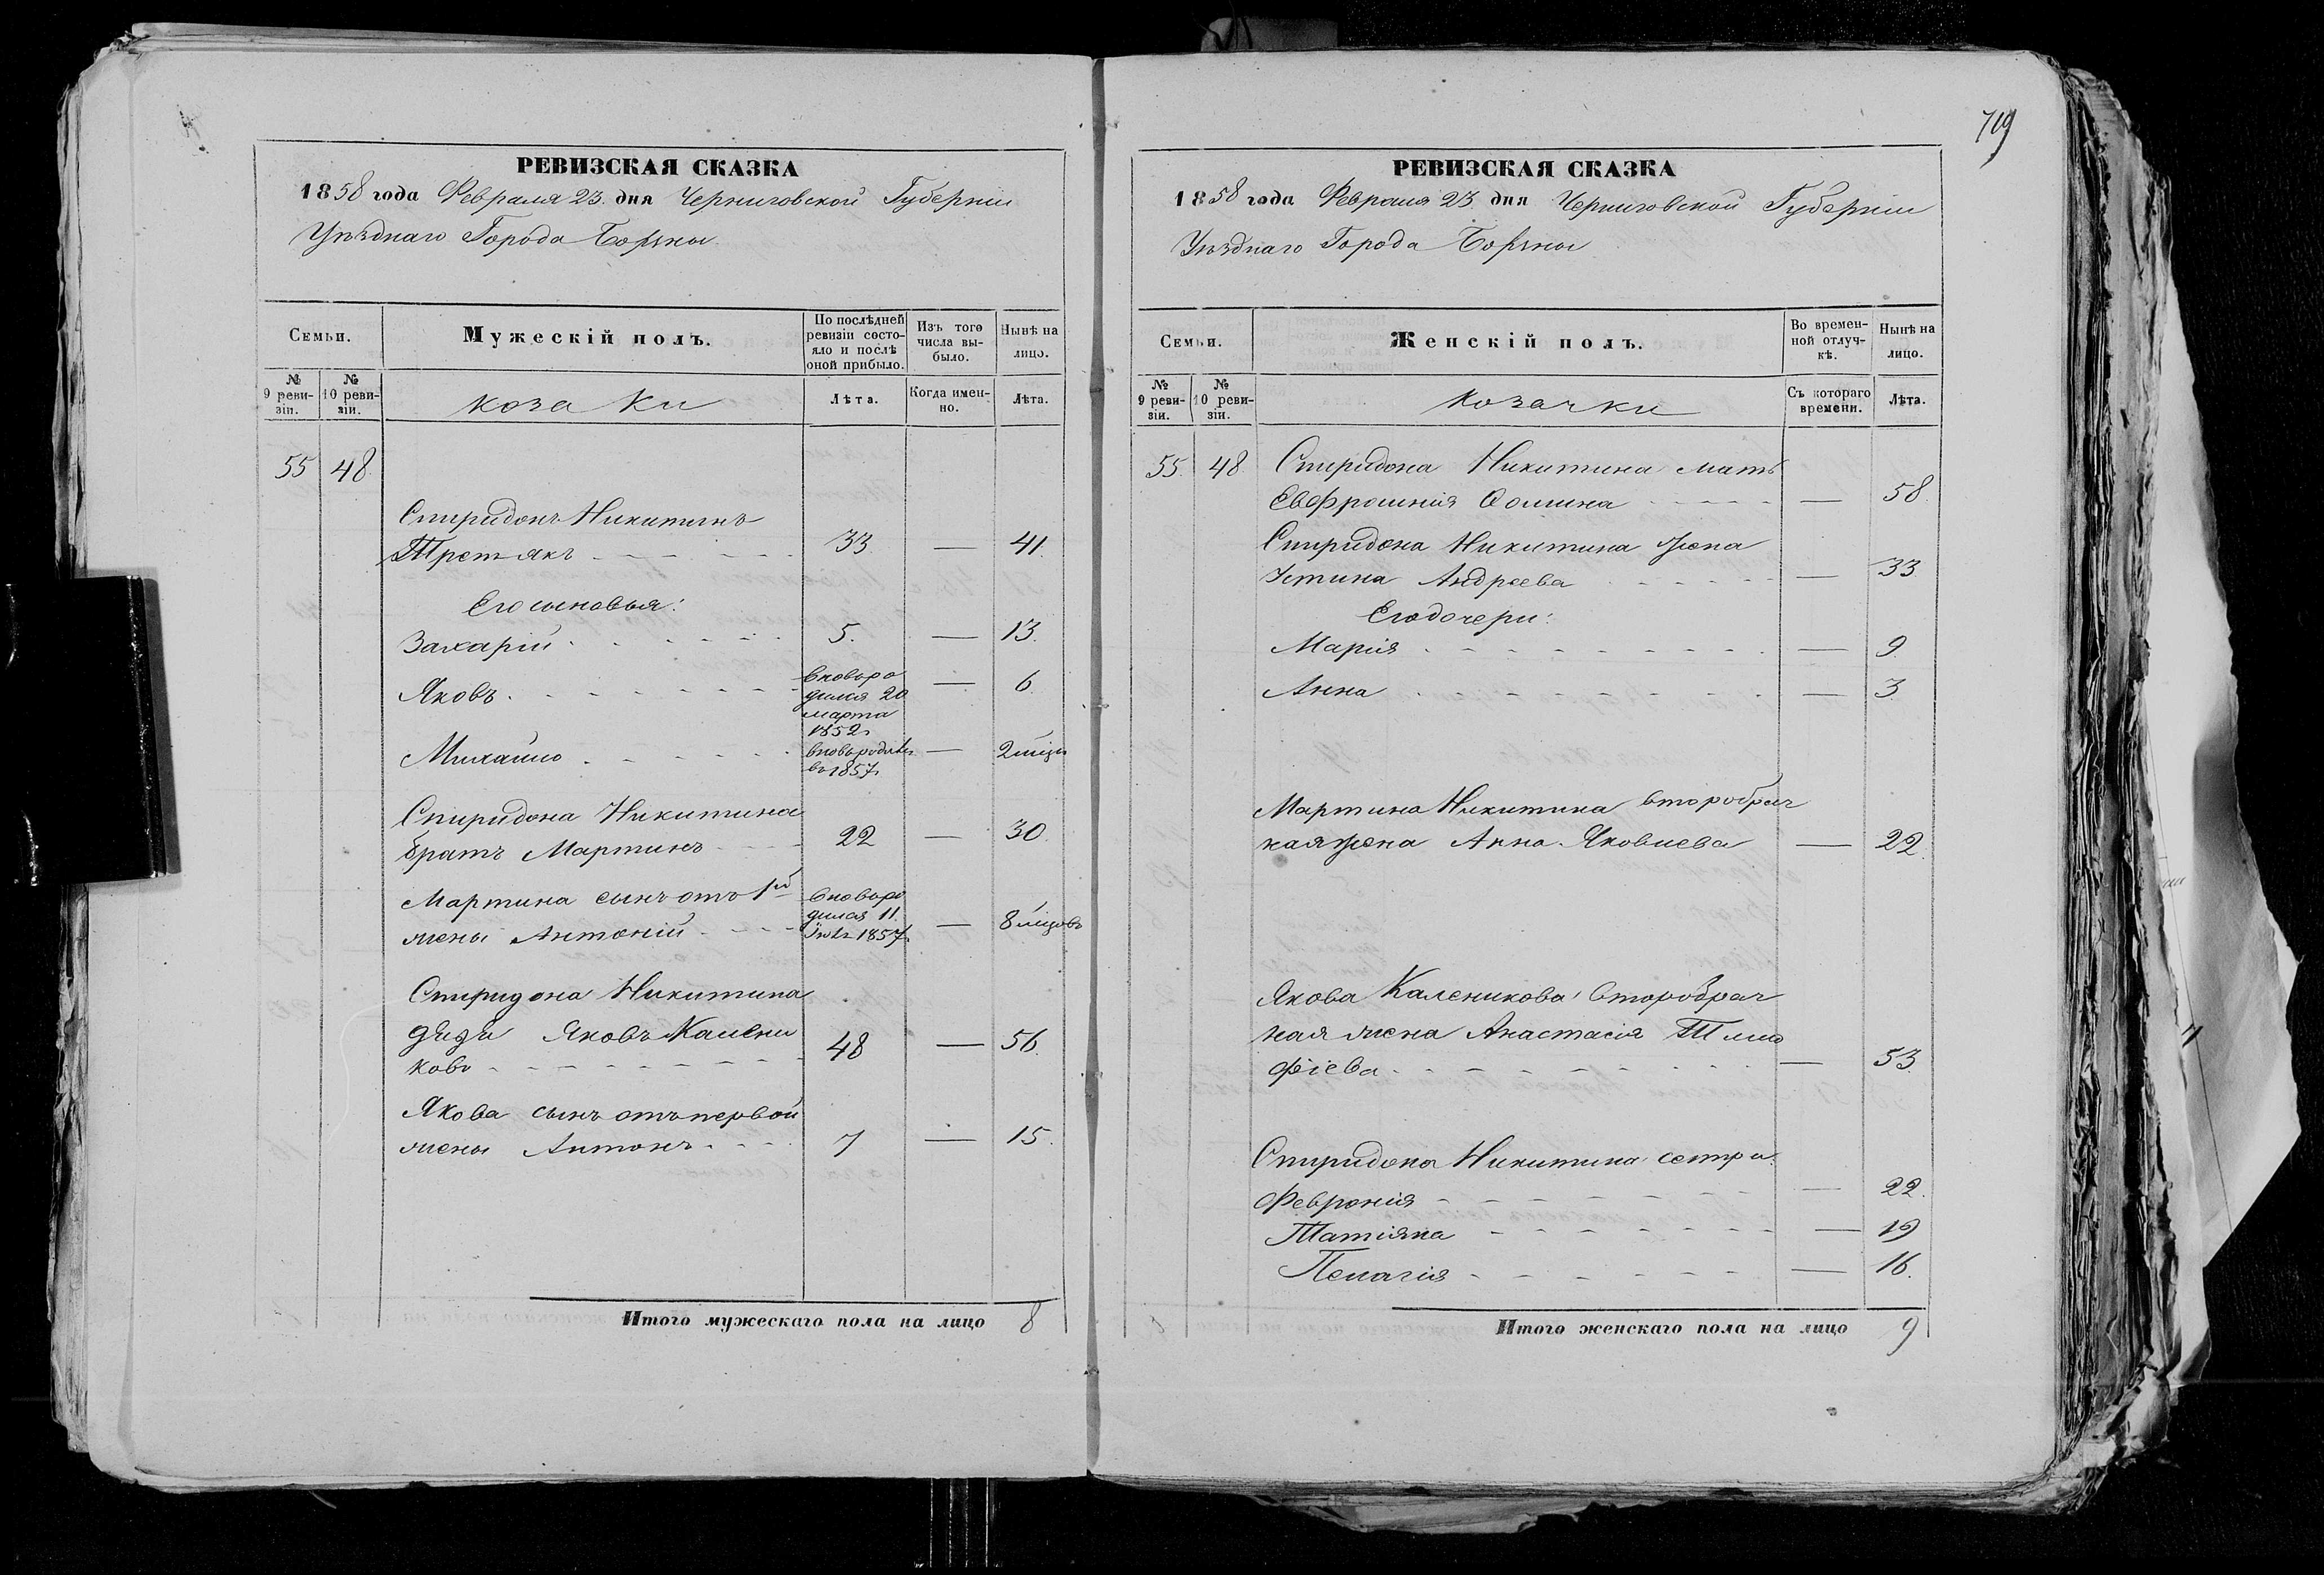 719
РЕВИЗСКАЯ СКАЗКА
1858 года Февраля 23 дня Черниговской Губерніи
Уѣзднаго Города Борзны
Семьи.
Мужескій полъ.
По послѣдней ревизіи состояло и послѣ оной прибыло.
Изъ того числа выбыло.
Нынѣ на лицо.
№ 9 ревизіи.
№ 10 ревизіи.
козаки
Лѣта.
Когда именно.
Лѣта.
55 48
Спиридонъ Никитинъ
Третьякъ 33 — 41
Его сыновья:
Захарій 5. — 13.
Яковъ вновь родился 20 марта 1852 — 6
Михайло вновь родился въ 1857 — 2 мѣся
Спиридона Никитина
братъ Мартинъ 22 — 30
Мартина сынъ отъ 1й
жены Антоній вновь родился 11 1857 — 8 мѣцовъ
Спиридона Никитина
дядя Яковъ Калени
ковъ 48 — 56
Якова сынъ отъ первой
жены Антонъ 7 — 15.
Итого мужескаго пола на лицо 8
РЕВИЗСКАЯ СКАЗКА
1858 года Февраля 23 дня Черниговской Губерніи
Уѣзднаго Города Борзны
Семьи.
Женскій полъ.
Во временной отлучкѣ.
Нынѣ на лицо.
№ 9 ревизіи.
№ 10 ревизіи.
козачки
Съ котораго времени.
Лѣта.
55. 48 Спиридона Никитина мать
Евфросинія Фомина — 58.
Спиридона Никитина жена
Устина Андреева — 33
Его дочери:
Марія — 9
Анна — 3.
Мартина Никитина второбрач
ная жена Анна Яковлева — 22.
Якова Каленикова второбрач
ная жена Анастасія Тимо
фіева — 53
Спиридона Никитина сестри
Февронія — 22.
Татіяна — 19
Пелагія — 16.
Итого женскаго пола на лицо 9